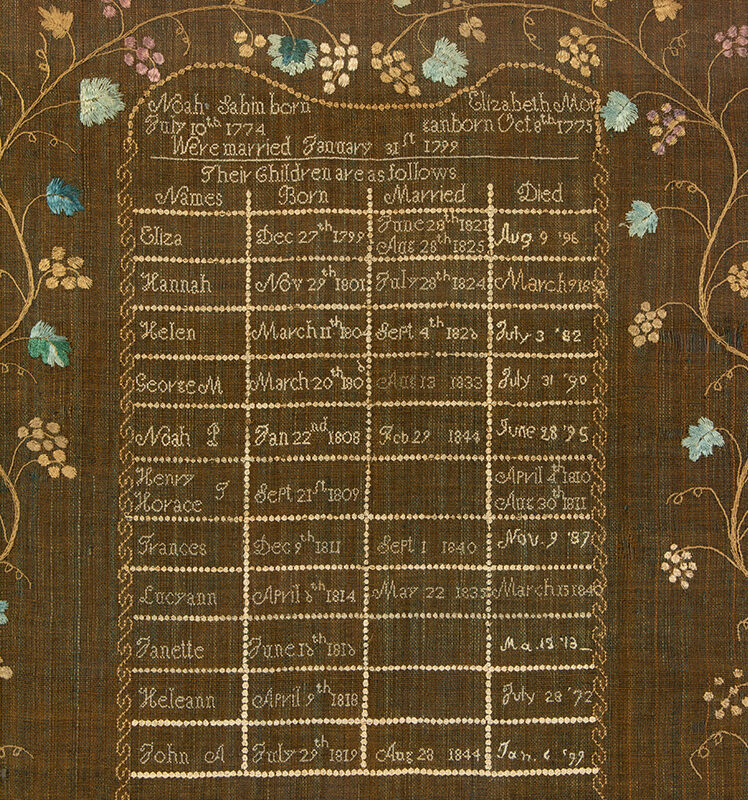 Noah Sabin born Elizabeth Mor
July 10th 1774 ganborn Oct 8th 1775
Were married January 31st 1799
Their Children are as follows
Names Born Married Died
Eliza Dec 27th 1799 June 28th 1821 Aug 28th 1825 Aug 9 '96
Hannah Nov 29th 1801 July 28th 1824 March 9 185
Helen March 11th 180 Sept 4th 1828 July 3 '82
George M March 20th 180 Aug 13 1833 July 31 '90
Noah P Jan 22nd 1808 Feb 29 1844 June 28 '95
Henry Horace T Sept 21st 1809 April 4th 1810 Aug 30th 1811
Frances Dec 9th 1811 Sept 1 1840 Nov. 9 '87
Lucyann April 8th 1814 May 22 1835 March 15 184
Janette June 18th 1816 Ma 18 '13
Heleann April 9th 1818 July 28 '72
John A July 29th 1819 Aug 28 1844 Jan. 6 '99